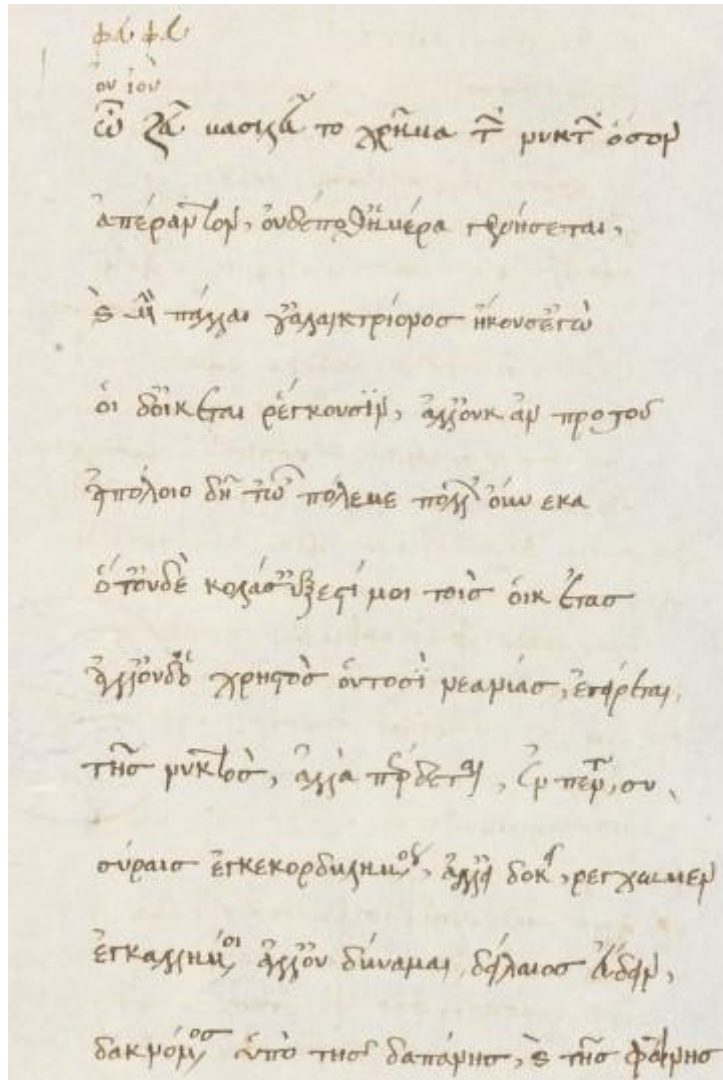 ἰοὺ ἰοὺ
ὦ ζεῦ βασιλεῦ το χρῆμα τῶν νυκτῶν ὅσον
ἀπέραντον, οὐδέποθ' ἡμέρα γενήσεται,
καὶ μὴν πάλλαι γ' ἀλαικτριόνος ἤκουσ' ἐγὼ
οἱ δ' οἰκέται ῥέγκουσϊν, ἀλλ' οὐκ ἂν προτοῦ
ἀπόλοιο δῆτ' ὦ πόλεμε πολλῶν οὕνεκα
ὅτ' οὐδὲ κολάσ' ἔξεστί μοι τοὺς οἰκέτας
ἀλλ' οὐδ' ὁ χρηστὸς οὑτοσῒ νεανίας, ἐγείρεται,
τῆς νυκτὸς, ἀλλὰ πέρδεται, ἐν πέντε, συ
σύραις ἐγκεκορδυλημένος, ἀλλ' εἰ δοκεῖ, ρεγχωμεν
ἐγκαλλημένοι ἀλλ' οὐ δύναμαι δείλαιος εὕδειν,
δακνόμενος ὑπὸ τῆς δαπάνης, καὶ τῆς φάτνης